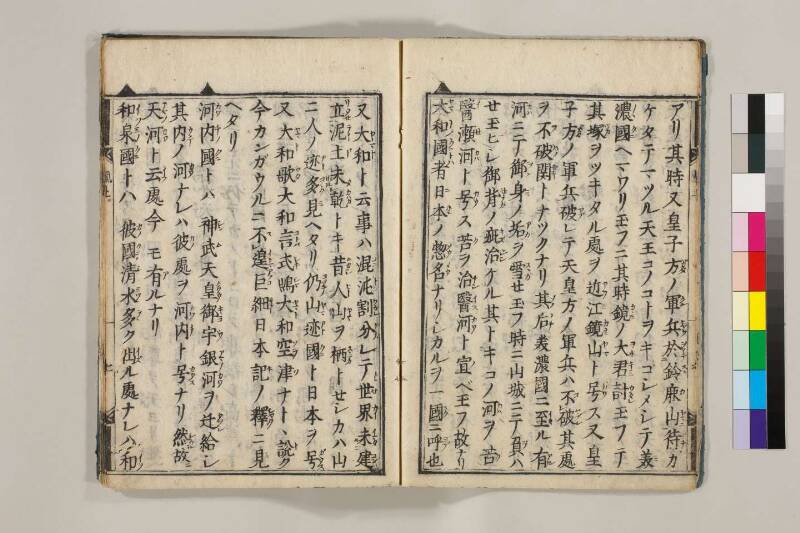 アリ其時又皇子方ノ軍兵於鈴鹿山待カ
ケタテマツル天王コノコトヲキコシメシテ美
濃國ヘマワリ玉フニ其時鏡ノ大君討玉フ二テ
其塚ヲツキタル處ヲ近江鏡山ト号ス又皇
子方ノ軍兵破レテ天皇方ノ軍兵ハ不破其處
ヲ不破関トナツクナリ其后美濃國ニ至ル有
河ニテ御身ノ垢ヲ雪セ玉フ時ニ山城ニテ負ハ
セ玉ヒシ御背ノ疵治ケル其トキコノ河ヲ苦
醫瀬河ト号ス苦ヲ治醫河ト宣ベ玉フ故ナリ
大和國者日本ノ惣名ナリシカルヲ一國ニ呼也
又大和ト云事ハ混沌割分レテ世界未建
立泥土未乾トキ昔人山ヲ栖トセシカハ山
ニ人ノ迹多見ヘタリ仍山迹國ト日本ヲ号
又大和歌大和言式嶋大和空津ナト丶說ク
今カンガウルニ不遑巨細日本記ノ釋ニ見
ヘタリ
河内國トハ神武天皇御宇銀河ヲ迁給シ
其内ノ河ナレハ彼處ヲ河内ト号ナリ然故ニ
天河ト云處今モ有ルナリ
和泉國トハ彼國清水多ク出ル處ナレハ和